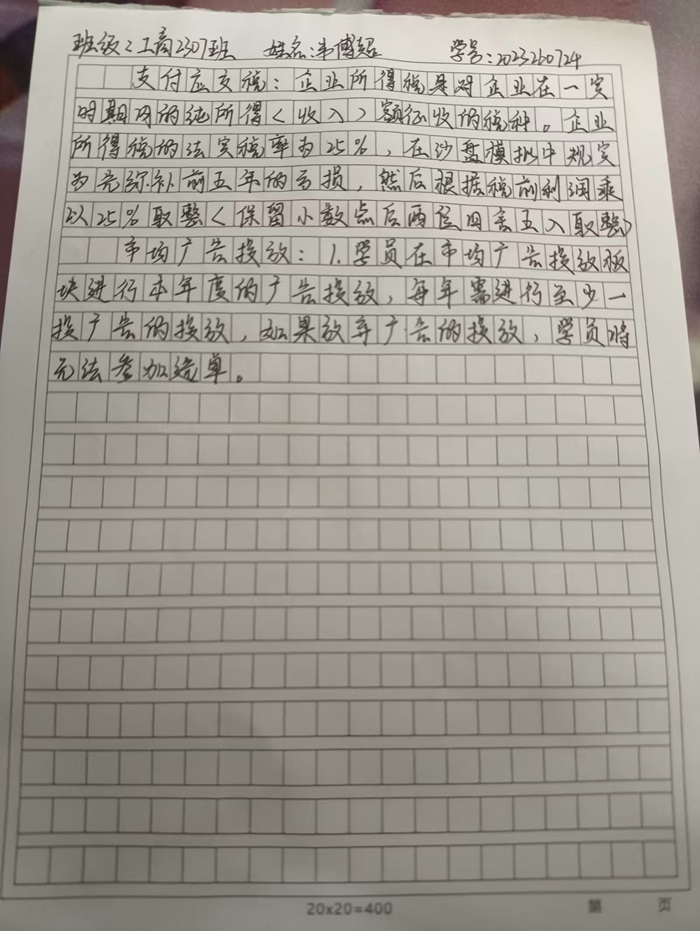 班级:工商2307班 姓名:韦博超 学号:2023260724
支付应交税:企业所得税是对企业在一定
时期内的纯所得(收入)额征收的税种。企业
所得税的法定税率为25%,在沙盘模拟中规定
为先弥补前五年的亏损,然后根据税前利润乘
以25%取整(保留小数点后两位四舍五入取整)
市场广告投放:1.学员在市场广告投放版
块进行本年度的广告投放,每年需进行至少一
投广告的投放,如果放弃广告的投放,学员将
无法参加选单。
20x20=400 第 页